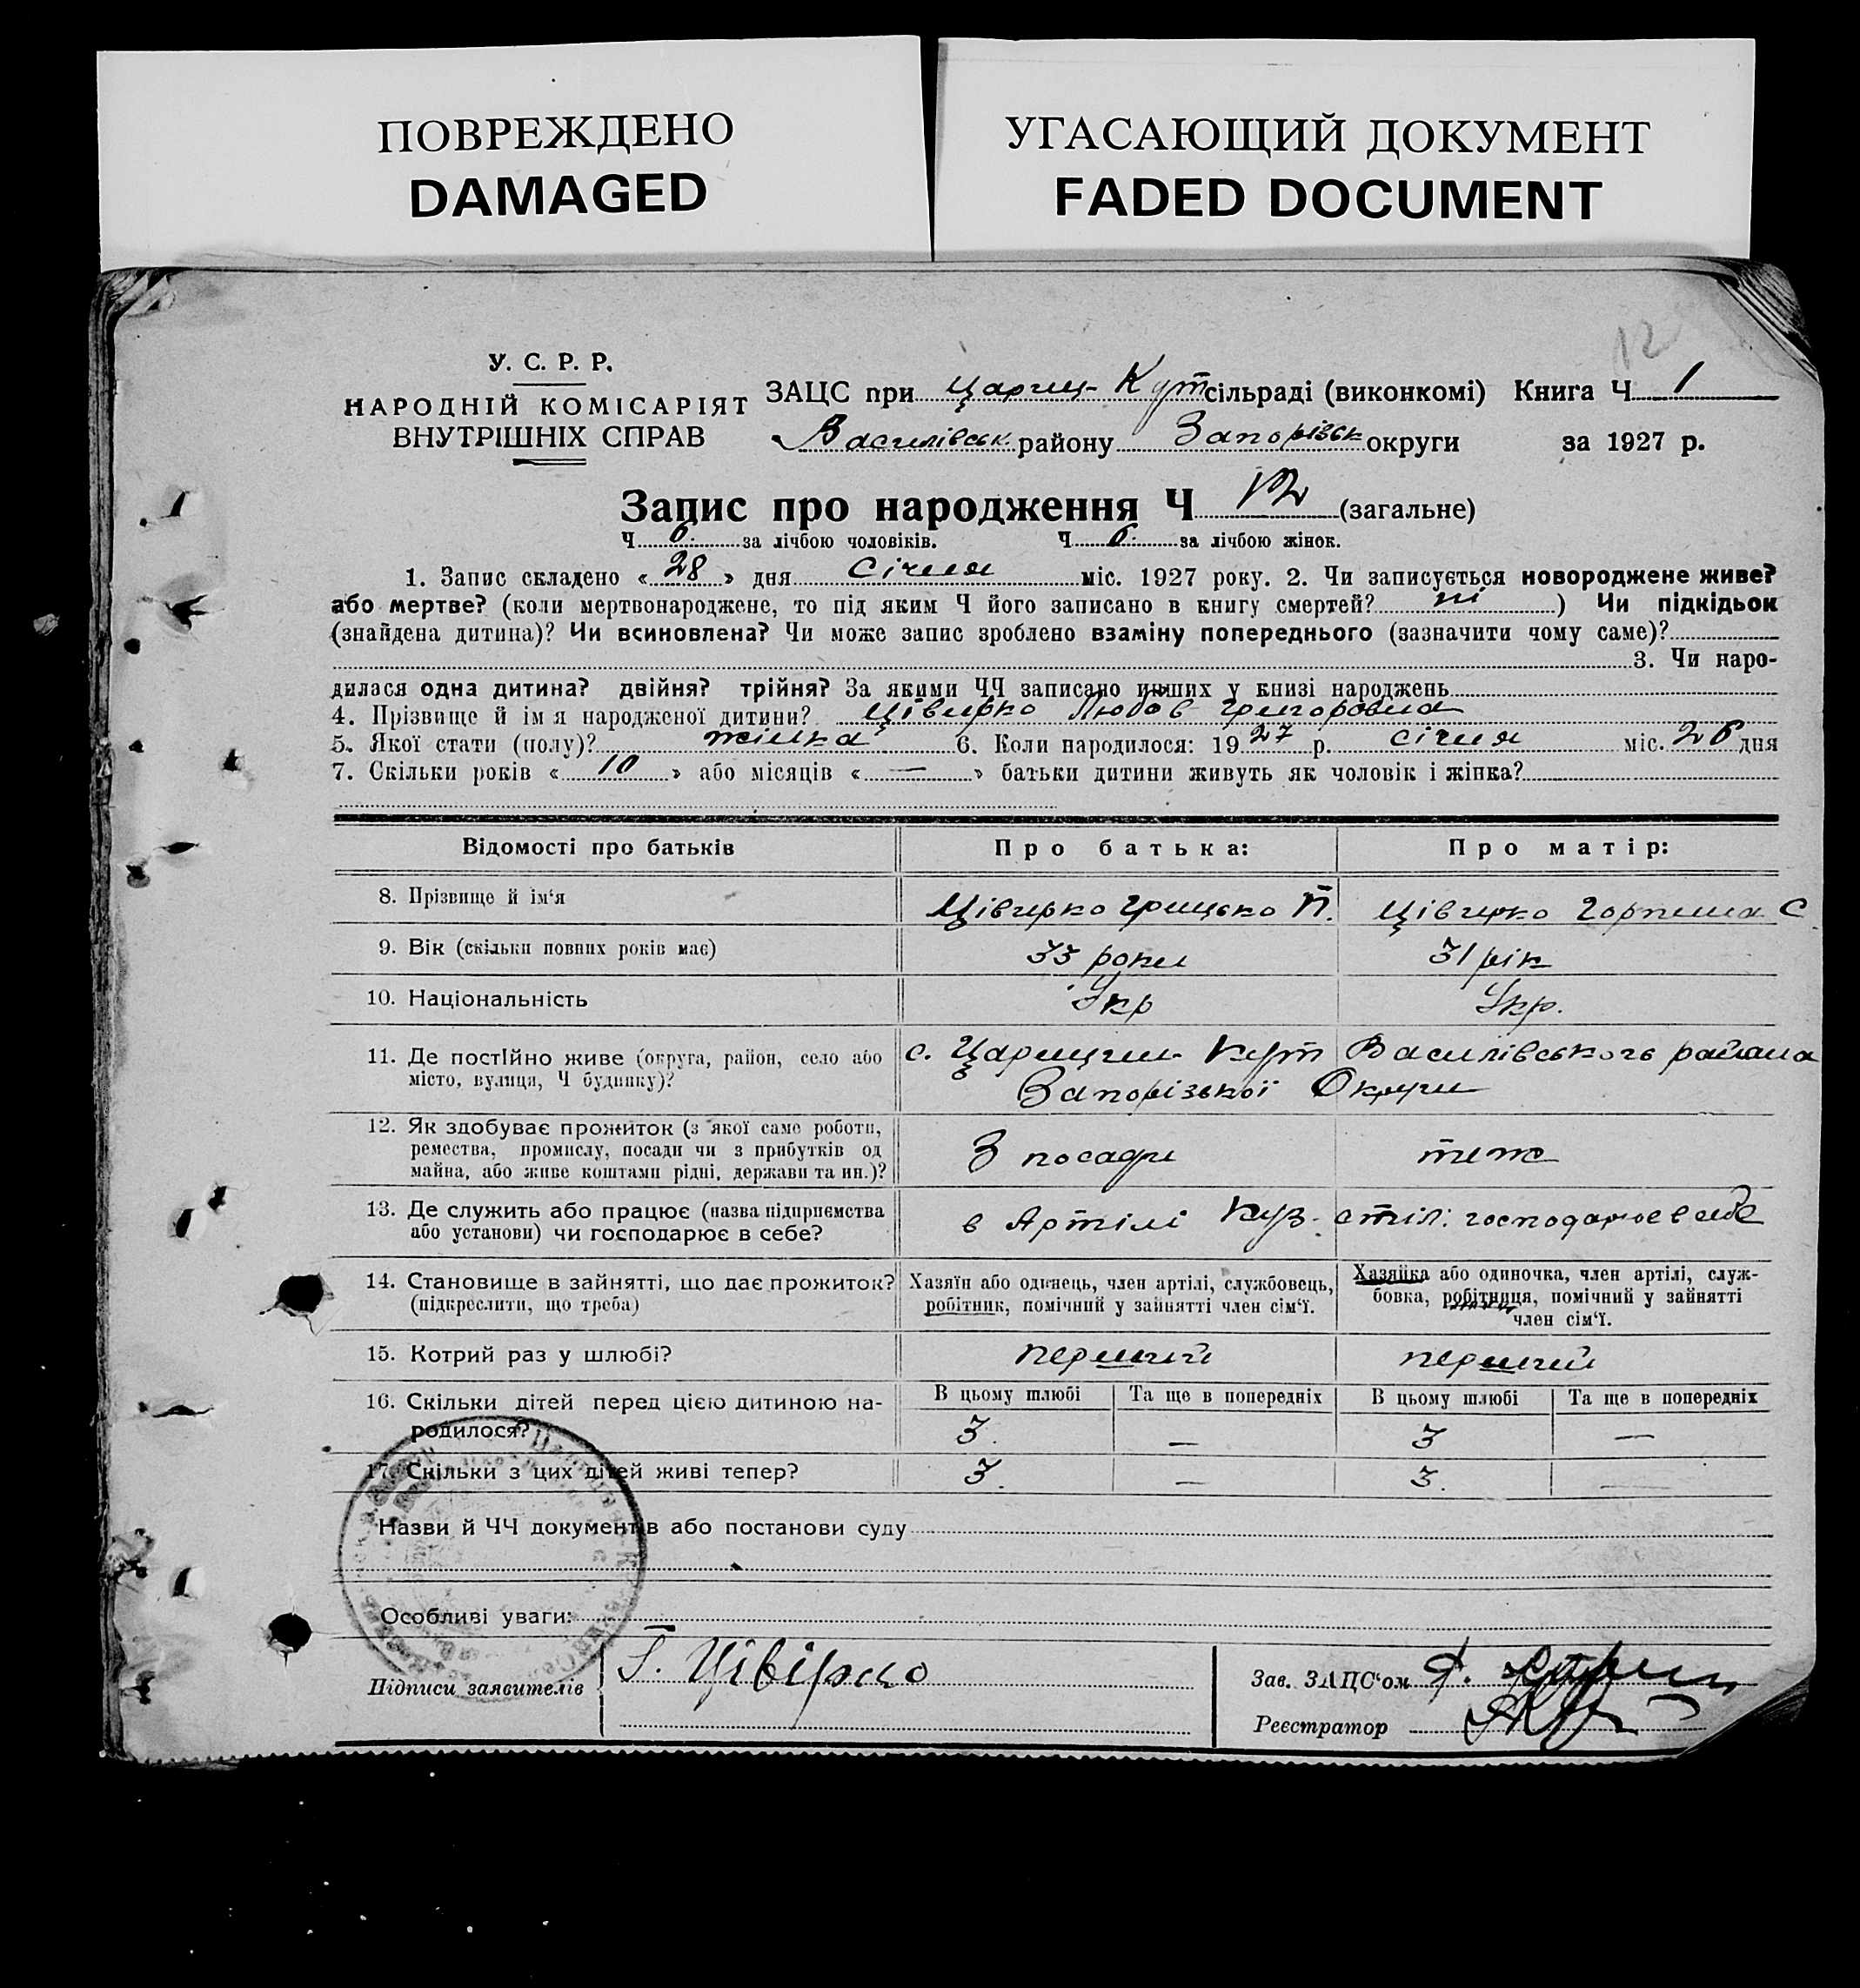 ПОВРЕЖДЕНО
DAMAGED
УГАСАЮЩИЙ ДОКУМЕНТ
FADED DOCUMENT
12
У. С. Р. Р.
НАРОДНІЙ КОМІСАРІЯТ
ВНУТРІШНІХ СПРАВ
ЗАЦС при Цариц- Кут сільраді (виконкомі) Книга Ч 1
Василівськ. району Запорізьк округи за 1927 р.
Запис про народження Ч 12 (загальне)
Ч 6. за лічбою чоловіків. Ч 6. за лічбою жінок.
1. Запис складено «28» дня Січня міс. 1927 року. 2. Чи записується новороджене живе?
або мертве? (коли мертвонароджене, то під яким Ч його записано в книгу смертей? ні ) Чи підкідьок
(знайдена дитина)? Чи всиновлена? Чи може запис зроблено взаміну попереднього (зазначити чому саме)?
3. Чи наро-
дилася одна дитина? двійня? трійня? За якими ЧЧ записано инших у книзі народжень
4. Прізвище й імя народженої дитини? Цівирко Любов Григоровна
5. Якої стати (полу)? жінка 6. Коли народилося: 1927 р. січня міс. 26 дня
7. Скільки років «10» або місяців «—» батьки дитини живуть як чоловік і жінка?
Відомості про батьків Про батька: Про матір:
8. Прізвище й ім'я Цівирко Грицько П. Цівирко Горпина С
9. Вік (скільки повних років має) 33 роки 31 рік
10. Національність Укр Укр.
11. Де постійно живе (округа, район, село або с. Царицин- Кут Василівського района
місто, вулиця, Ч будинку)? Запорізької Округи
12. Як здобуває прожиток (з якої саме роботи,
ремества, промислу, посади чи з прибутків од З посади теж
майна, або живе коштами рідні, держави та ин.)?
13. Де служить або працює (назва підприємства в Артілі Куз. стіл. господарює в себе
або установи) чи господарює в себе?
14. Становище в зайнятті, що дає прожиток? Хазяїн або одинець, член артілі, службовець, Хазяйка або одиночка, член артілі, служ-
(підкреслити, що треба) робітник, помічний у зайнятті член сім'ї. бовка, робітниця, помічний у зайнятті
член сім'ї.
15. Котрий раз у шлюбі? перший перший
16. Скільки дітей перед цією дитиною на- В цьому шлюбі Та ще в попередніх В цьому шлюбі Та ще в попередніх
родилося? 3. — 3 —
17. Скільки з цих дітей живі тепер? 3. — 3. —
Назви й ЧЧ документів або постанови суду
Особливі уваги:
Підписи заявителів Г. Цівірко
Зав. ЗАЦС'ом
Реєстратор